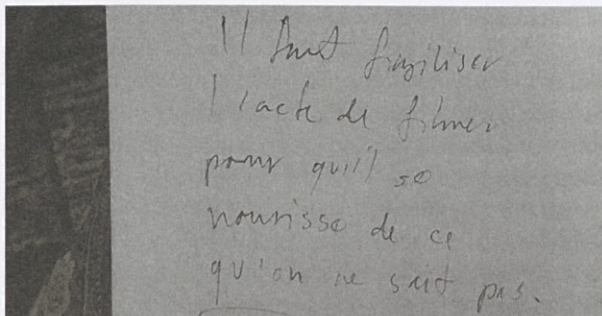 Il faut fragiliser
l'acte de filmer
pour qu'il se
nourisse de ce
qu'on ne sait pas.